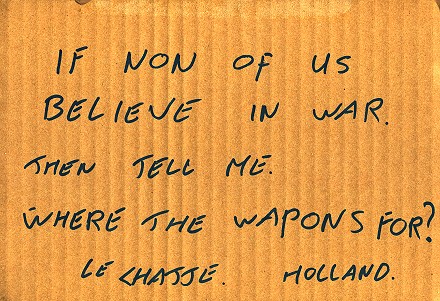 IF NON OF US
BELIEVE IN WAR.
THEN TELL ME.
WHERE THE WAPONS FOR?
LE CHASSE. HOLLAND.